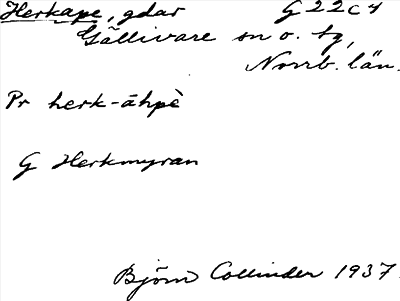 Herkape, gdar G22C4
Gällivare sn o. tg,
Norrb. län.
Pr herk-āhpè
G Herkmyran
Björn Collinder 1937